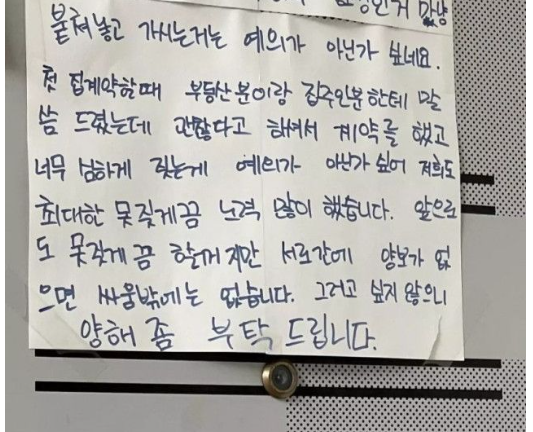 붙쳐놓고 가시는거는 예의가 아닌가 싶네요.
첫 집계약할때 부동산분이랑 집주인분한테 말
씀 드렸는데 괜찮다고 하셔서 계약를 했고
너무 심하게 짖는게 예의가 아닌가 싶어 저희도
최대한 못짖게끔 노력 많이 했습니다. 앞으로
도 못짖게 끔 할꺼지만 서로간에 양보가 없
으면 싸움밖에는 없습니다. 그러고 싶지 않으니
양해 좀 부탁 드립니다.